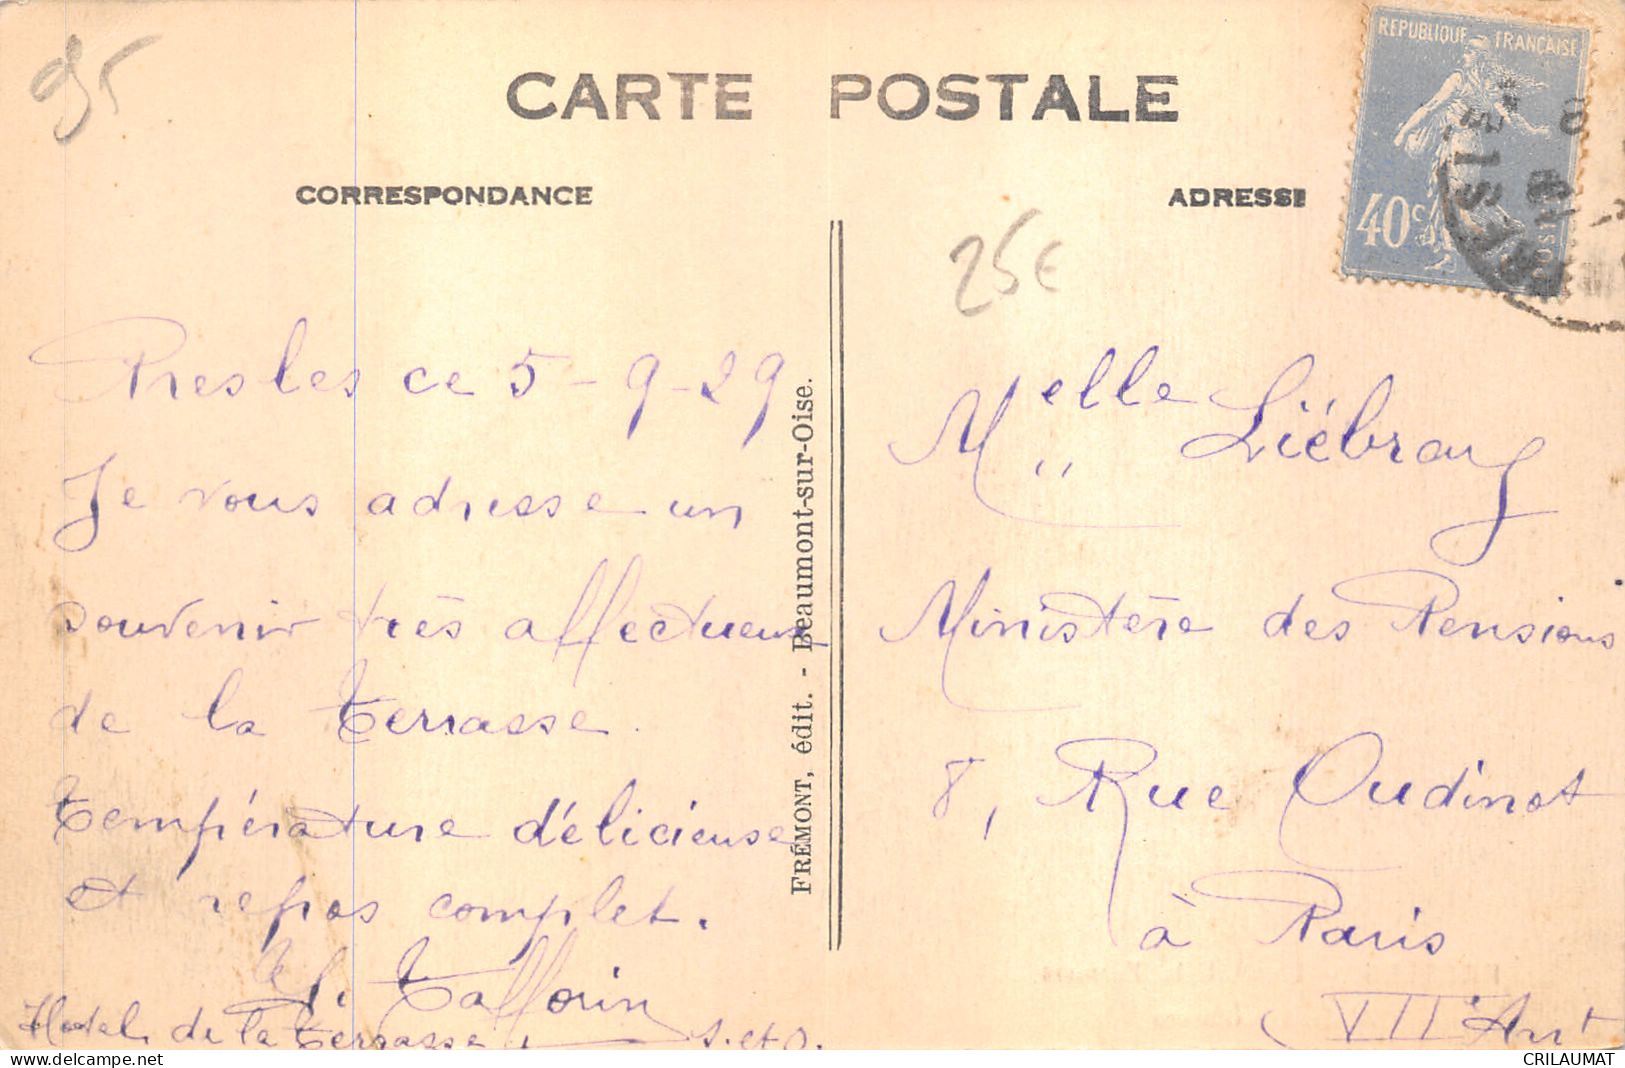 95
CARTE POSTALE
REPUBLIQUE FRANÇAISE
40c
POSTES
CORRESPONDANCE
ADRESSE
25€
Presles ce 5-9-29
Je vous adresse un
souvenir très affectueux
de la Terrasse.
Température délicieuse
et repos complet.
Tafforin
Hotel de la Terrasse S.et O.
FRÉMONT, édit. - Beaumont-sur-Oise.
Melle
Ministère des Pensions
8, Rue Oudinot
à Paris
VII Arrt
CRILAUMAT